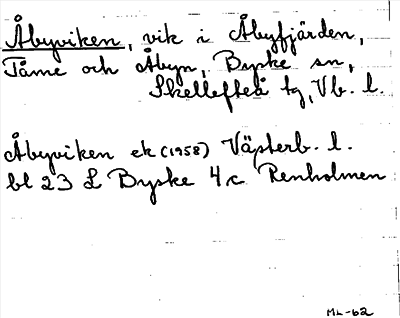 Åbyviken, vik i Åbyfjärden,
Tåme och Åbyn, Byske sn,
Skellefteå tg, Vb. l.
Åbyviken ek (1958) Västerb. l.
bl 23 L Byske 4c Renholmen
ML-62